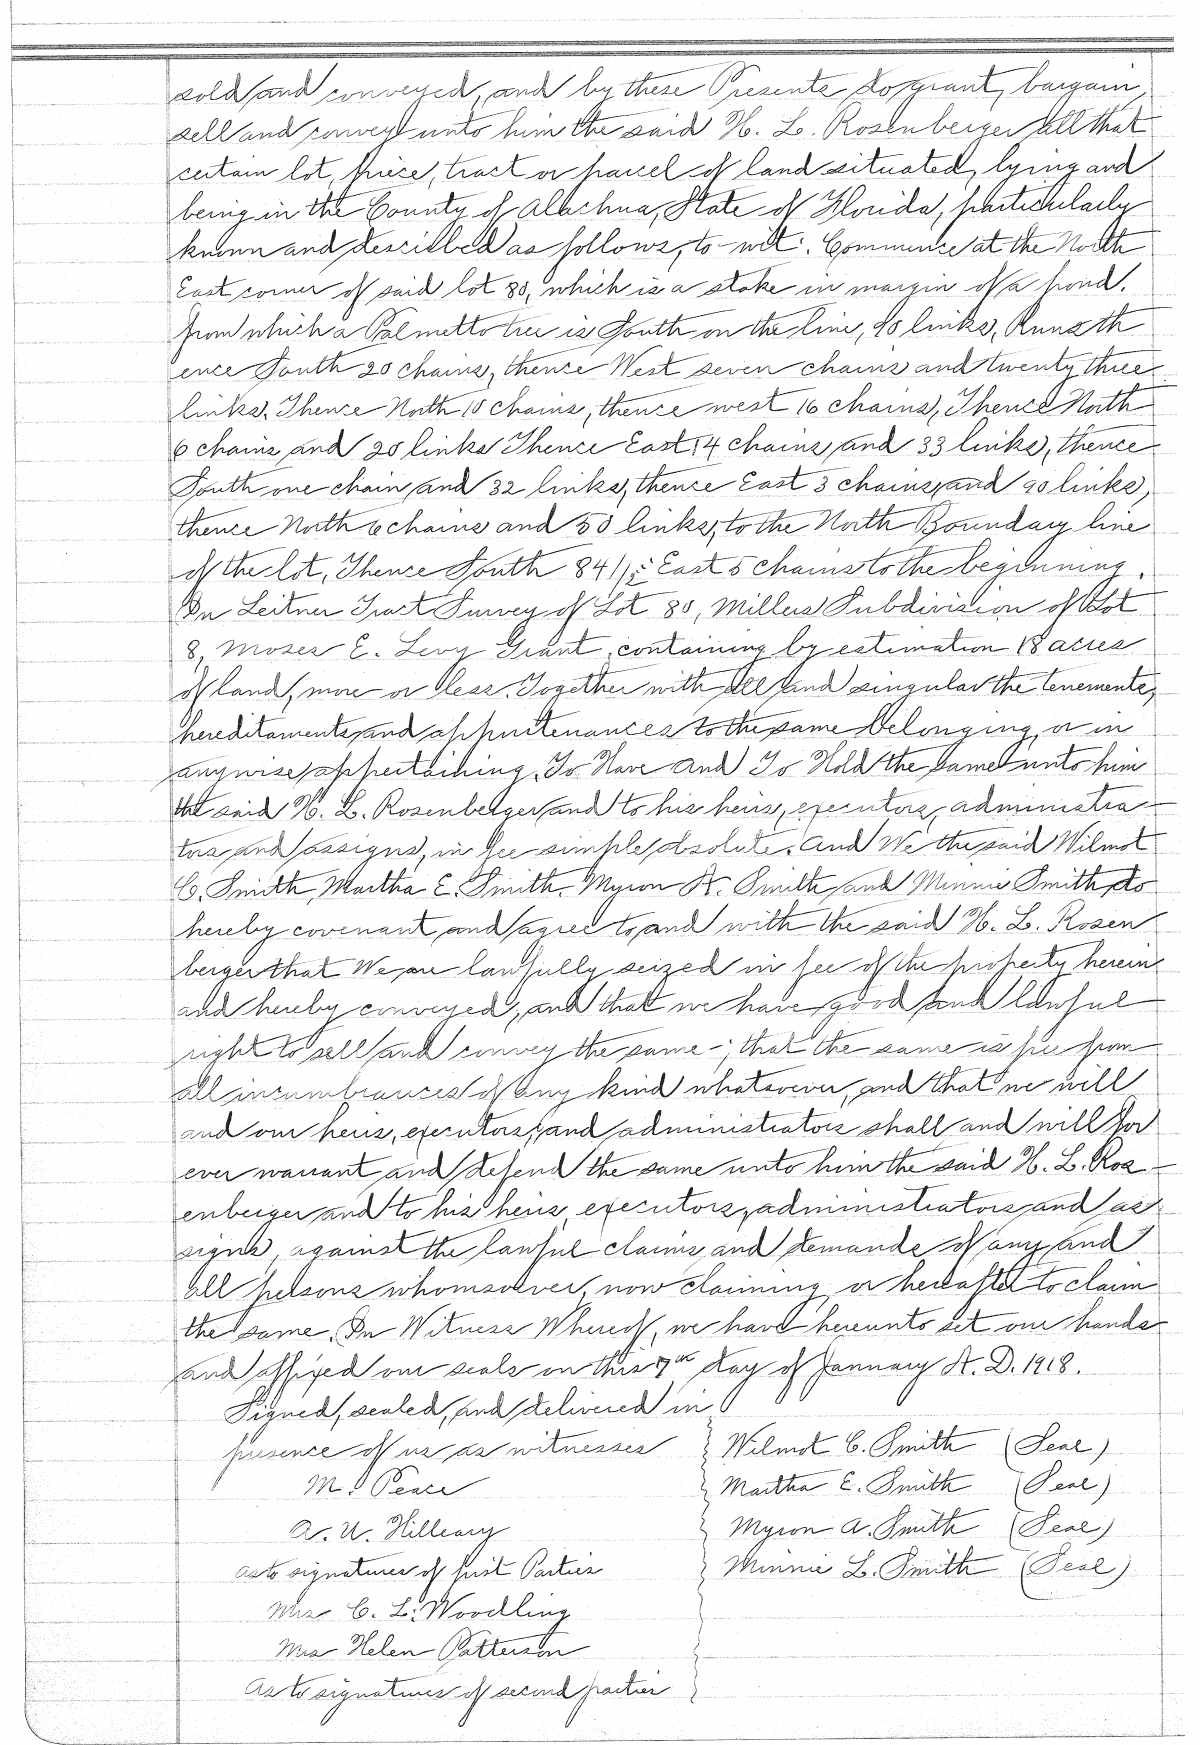 sold and conveyed, and by these Presents do grant, bargain,
sell and convey unto him the said H. L. Rosenberger all that
certain lot, piece, tract or parcel of land situated, lying and
being in the County of Alachua, State of Florida, particularly
known and described as follows, to-wit: Commence at the North
East corner of said lot 80, which is a stake in margin of a pond.
from which a Palmetto tree is South on the line, 90 links, Runs th
ence South 20 chains, thence West seven chains and twenty three
links, Thence North 10 chains, thence west 16 chains, Thence North
6 chains and 20 links Thence East 14 chains and 33 links, thence
South one chain and 32 links, thence East 3 chains and 90 links,
thence North 6 chains and 50 links, to the North Boundary line
of the lot, Thence South East 5 chains to the beginning.
In Leitner Tract Survey of Lot 80, Millers Subdivision of Lot
8, Moses E. Levy Grant, containing by estimation 18 acres
of land, more or less. Together with all and singular the tenements,
hereditaments and appurtenances to the same belonging, or in
anywise appertaining, To Have and To Hold the same unto him
the said H. L. Rosenberger and to his heirs, executors, administra
tors and assigns, in fee simple absolute. And We the said Wilmot
C. Smith, Martha E. Smith, Myron A. Smith and Minnie Smith, do
hereby covenant and agree to and with the said H. L. Rosen
berger that We are lawfully seized in fee of the property herein
and hereby conveyed, and that we have good and lawful
right to sell and convey the same-; that the same is free from
all incumbrances of any kind whatsoever, and that we will
and our heirs, executors, and administrators shall and will for
ever warrant and defend the same unto him the said H. L. Ros
enberger and to his heirs, executors, administrators and as-
signs, against the lawful claims and demands of any and
all persons whomsoever, now claiming or hereafter to claim
the same. In Witness Whereof, we have hereunto set our hands
and affixed our seals on this 7th day of January A. D. 1918.
Signed, sealed, and delivered in
presence of us as witnesses
Wilmot C. Smith (Seal)
M. Peace
Martha E. Smith (Seal)
A. U. Hilleary
Myron A. Smith (Seal)
as to signatures of first Parties
Minnie L. Smith (Seal)
Mrs C. L. Woodling
Mrs Helen Patterson
As to signatures of second parties